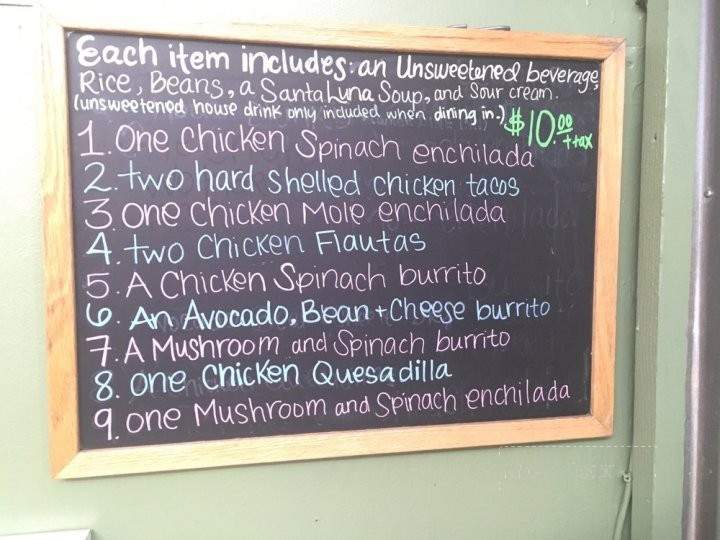 Each item includes: an Unsweetened beverage,
Rice, Beans, a Santa Luna Soup, and Sour cream.
(unsweetened house drink only included when dining in.)
$10.00 + tax
1. One Chicken Spinach enchilada
2. two hard shelled chicken tacos
3. one Chicken Mole enchilada
4. two Chicken Flautas
5. A Chicken Spinach burrito
6. An Avocado, Bean + Cheese burrito
7. A Mushroom and Spinach burrito
8. one Chicken Quesadilla
9. one Mushroom and Spinach enchilada